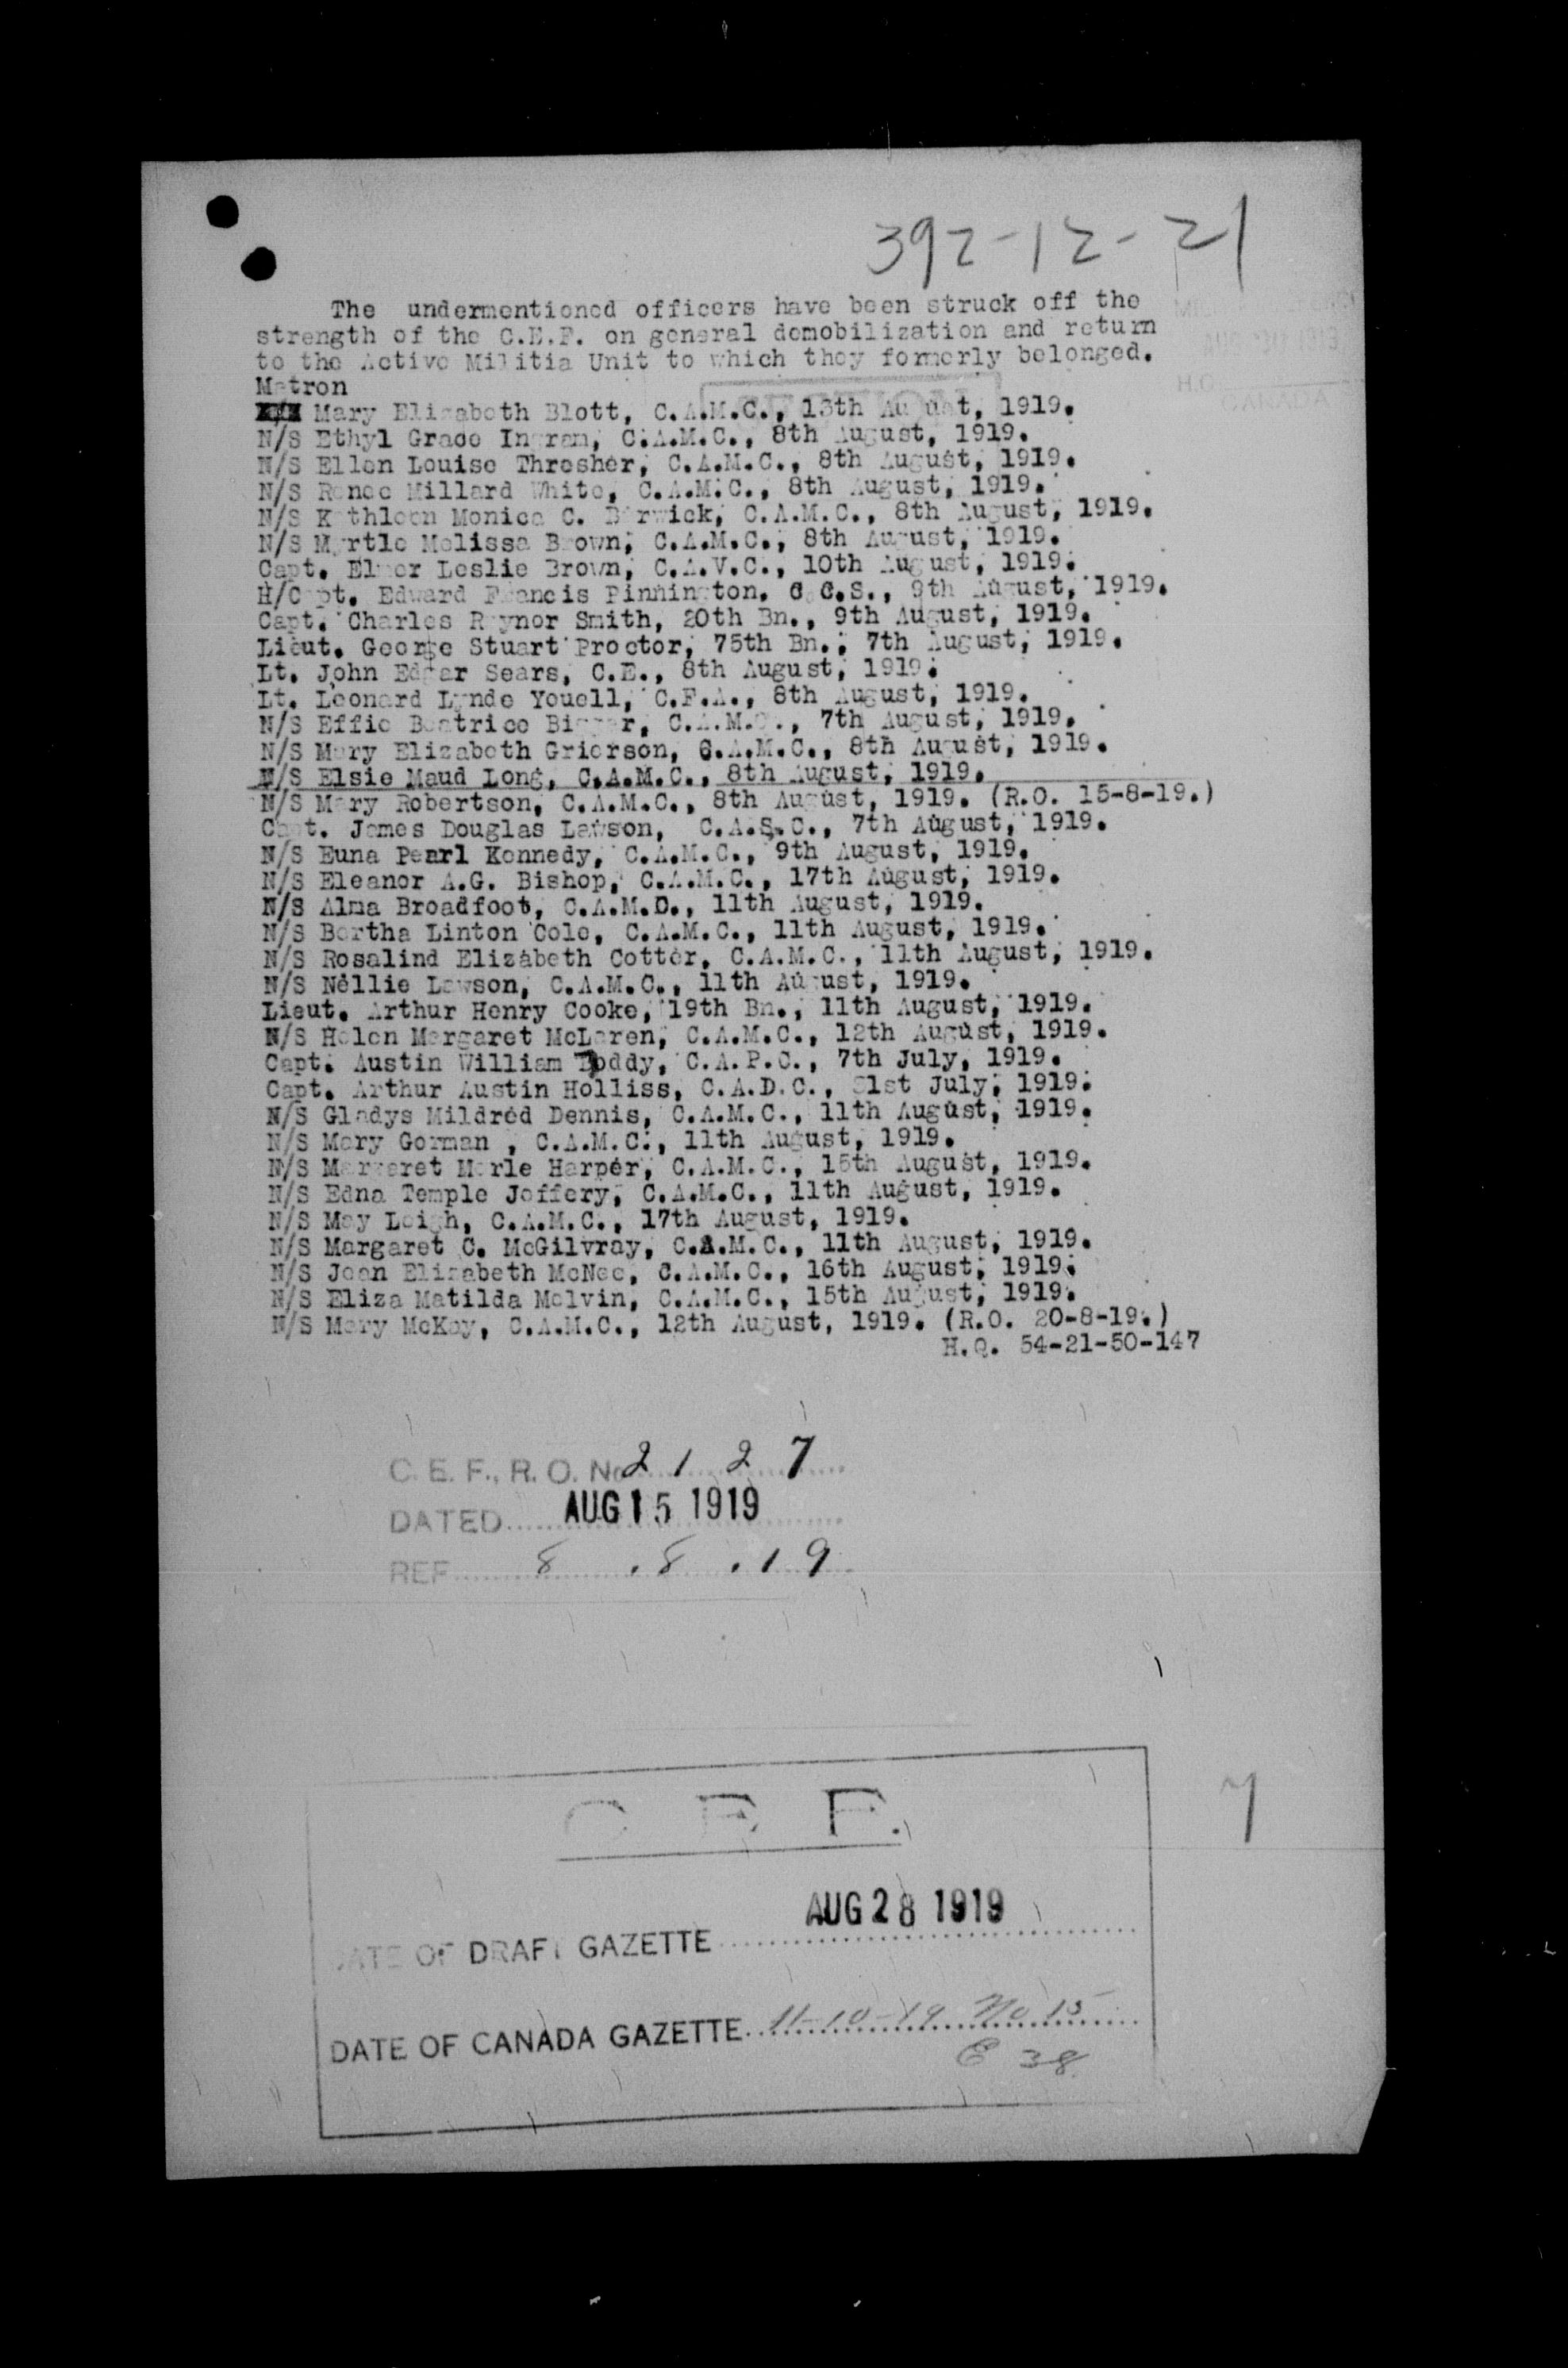 392-12-21
The undermentioned officers have been struck off the
strength of the C.E.F. on general demobilization and return
to the Active Militia Unit to which they formerly belonged.
Matron
Mary Elizabeth Blott, C.A.M.C., 13th August, 1919.
N/S Ethyl Grace Ingram, C.A.M.C., 8th August, 1919.
N/S Ellen Louise Thresher, C.A.M.C., 8th August, 1919.
N/S Renee Millard White, C.A.M.C., 8th August, 1919.
N/S Kathleen Monica C. Barwick, C.A.M.C., 8th August, 1919.
N/S Myrtle Melissa Brown, C.A.M.C., 8th August, 1919.
Capt. Elmer Leslie Brown, C.A.V.C., 10th August, 1919.
H/Capt. Edward Francis Pinnington, C.C.S., 9th August, 1919.
Capt. Charles Raynor Smith, 20th Bn., 9th August, 1919.
Lieut. George Stuart Proctor, 75th Bn., 7th August, 1919.
Lt. John Edgar Sears, C.E., 8th August, 1919.
Lt. Leonard Lynde Youell, C.F.A., 8th August, 1919.
N/S Effie Beatrice Bigger, C.A.M.C., 7th August, 1919.
N/S Mary Elizabeth Grierson, C.A.M.C., 8th August, 1919.
N/S Elsie Maud Long, C.A.M.C., 8th August, 1919.
N/S Mary Robertson, C.A.M.C., 8th August, 1919. (R.O. 15-8-19.)
Capt. James Douglas Lawson, C.A.S.C., 7th August, 1919.
N/S Euna Pearl Kennedy, C.A.M.C., 9th August, 1919.
N/S Eleanor A.G. Bishop, C.A.M.C., 17th August, 1919.
N/S Alma Broadfoot, C.A.M.C., 11th August, 1919.
N/S Bertha Linton Cole, C.A.M.C., 11th August, 1919.
N/S Rosalind Elizabeth Cotter, C.A.M.C., 11th August, 1919.
N/S Nellie Lawson, C.A.M.C., 11th August, 1919.
Lieut. Arthur Henry Cooke, 19th Bn., 11th August, 1919.
N/S Helen Margaret McLaren, C.A.M.C., 12th August, 1919.
Capt. Austin William Doddy, C.A.P.C., 7th July, 1919.
Capt. Arthur Austin Holliss, C.A.D.C., 31st July, 1919.
N/S Gladys Mildred Dennis, C.A.M.C., 11th August, 1919.
N/S Mary Gorman , C.A.M.C., 11th August, 1919.
N/S Margaret Merle Harper, C.A.M.C., 15th August, 1919.
N/S Edna Temple Jeffery, C.A.M.C., 11th August, 1919.
N/S May Leigh, C.A.M.C., 17th August, 1919.
N/S Margaret C. McGilvray, C.A.M.C., 11th August, 1919.
N/S Jean Elizabeth McNee, C.A.M.C., 16th August, 1919.
N/S Eliza Matilda Melvin, C.A.M.C., 15th August, 1919.
N/S Mary McKay, C.A.M.C., 12th August, 1919. (R.O. 20-8-19.)
H.Q. 54-21-50-147
C. E. F., R. O. No 2127
DATED AUG 15 1919
REF 8.8.19
C. E. F.
7
DATE OF DRAFT GAZETTE AUG 28 1919
DATE OF CANADA GAZETTE 11-10-19 No 15
E 38